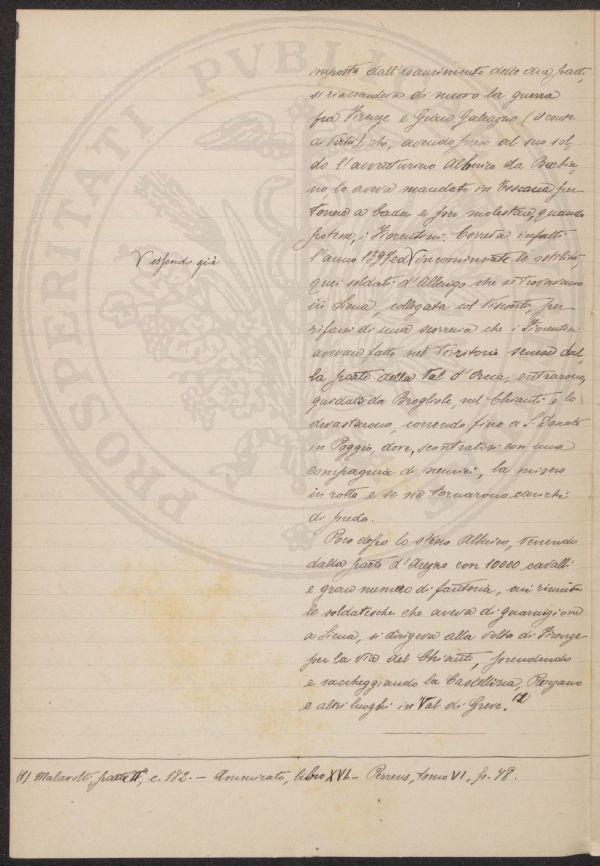 imposta dall'esaurimento delle due parti,
si riaccendeva di nuovo la guerra
fra Firenze e Gian Galeazzo (il conte
di Virtù), che, avendo preso al suo sol=
do l'avventuriero Alberico da Barbia=
no, lo aveva mandato in Toscana per
tenere a bada e per molestare, quando
potesse, i Fiorentini. Correva infatti
V essendo già
l'anno 1397 ed V incominciate le ostilità,
quei soldati d'Alberigo che si trovavano
in Siena, collegata col Visconti, per
rifarsi di una scorreria che i Fiorentini
avevano fatto nel territorio senese dal=
la parte della Val d'Orcia, entrarono,
guidati da Broglioli, nel Chianti e lo
devastarono, correndo fino a S. Donato
in Poggio, dove, scontratisi con una
compagnia di nemici, la misero
in rotta e se ne tornarono carichi
di preda.
Poco dopo lo stesso Alberico, venendo
dalla parte d'Arezzo con 10000 cavalli
e gran numero di fanteria, cui riunite
le soldatesche che aveva di guarnigione
a Siena, si dirigeva alla volta di Firenze
per la via del Chianti, prendendo
e saccheggiando la Castellina, Panzano
e altri luoghi in Val di Greve. (1)
(1) Malavolti, parte II, c. 182. — Ammirato, libro XVI. — Perrens, tomo VI, p. 48.
PROSPERITATI PVBLI